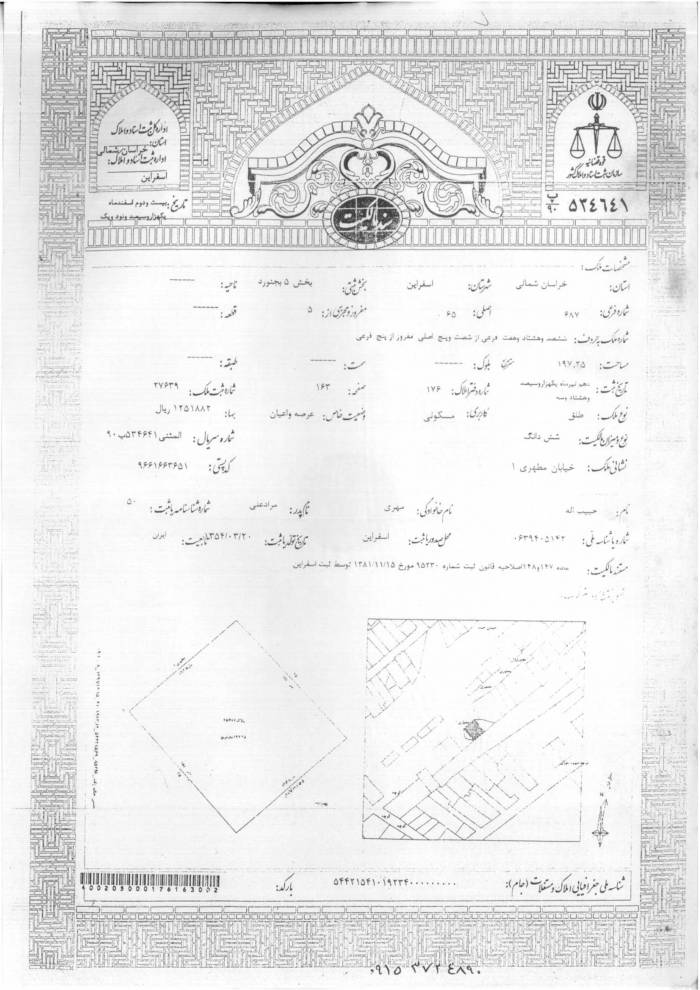 قوه قضائیه
سازمان ثبت اسناد و املاک کشور
۵۳۴۶۴۱ ب/۹۰
سند مالکیت
اداره کل ثبت اسناد و املاک
استان: خراسان شمالی
اداره ثبت اسناد و املاک:
اسفراین
تاریخ: بیست ودوم اسفندماه
یکهزاروسیصد ونود ویک
مشخصات ملک:
استان: خراسان شمالی شهرستان: اسفراین بخش ثبتی: بخش ۵ بجنورد ناحیه: ------
شماره فرعی: ۶۸۷ اصلی: ۶۵ مفروز و مجزی از: ۵ قطعه: ------
شماره ملک بحروف: ششصد وهشتاد وهفت فرعی از شصت وپنج اصلی مفروز از پنج فرعی
مساحت: ۱۹۷,۲۵ مترمربع بلوک: ------ سمت: ------ طبقه: ------
تاریخ ثبت: دهم تیرماه یکهزاروسیصد وهشتاد وسه شماره دفتر املاک: ۱۷۶ صفحه: ۱۶۳ شماره ثبت ملک: ۲۷۶۳۹
نوع ملک: طلق کاربری: مسکونی وضعیت خاص: عرصه واعیان بها: ۱۲۵۱۸۸۲ ریال
نوع و میزان مالکیت: شش دانگ شماره سریال: المثنی ۵۳۴۶۴۱ب۹۰
نشانی ملک: خیابان مطهری ۱ کدپستی: ۹۶۶۱۶۶۳۶۵۱
نام: حبیب اله نام خانوادگی: مهری نام پدر: مرادعلی شماره شناسنامه یا ثبت: ۵۰
شماره یا شناسه ملی: ۰۶۳۹۴۰۵۱۴۲ محل صدور یا ثبت: اسفراین تاریخ تولد یا ثبت: ۱۳۵۴/۰۳/۲۰ تابعیت: ایران
مستند مالکیت: ماده ۱۴۷و۱۴۸اصلاحیه قانون ثبت شماره ۹۵۲۳۰ مورخ ۱۳۸۱/۱۱/۱۵ توسط ثبت اسفراین
شناسه ملی جغرافیایی املاک و مستغلات (جام): ۵۴۴۲۱۵۴۱۰۱۹۲۳۴۰۰۰۰۰۰۰۰۰۰
بارکد:
400209000176163002
۰۹۱۵ ۳۷۲ ۴۸۹۰